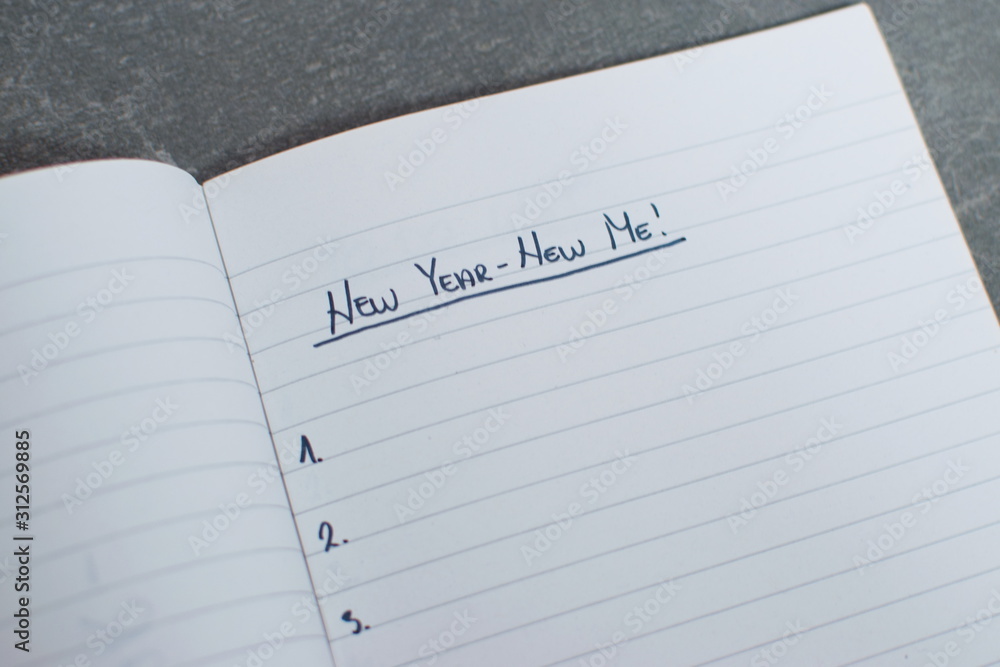 New Year - New Me!
1.
2.
3.
Adobe Stock | #312569885